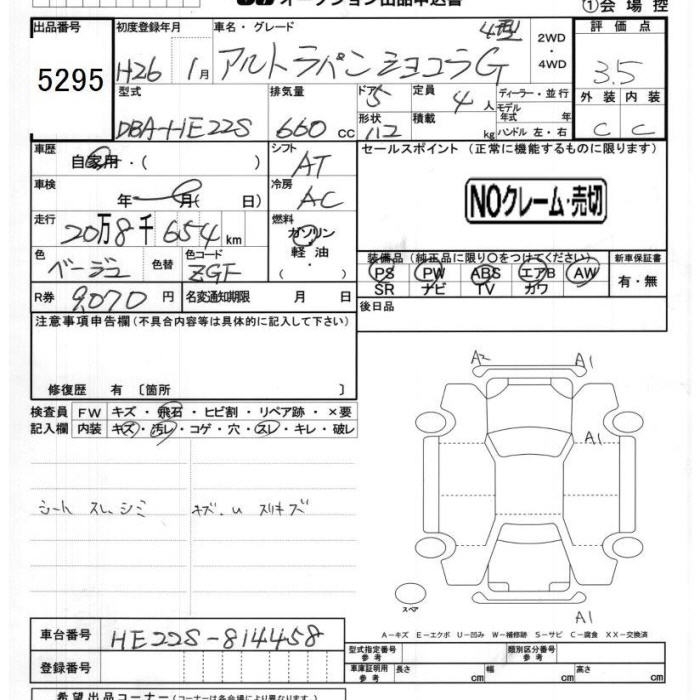 オークション出品申込書 ①会場控
出品番号 初度登録年月 車名・グレード 4型 2WD・4WD 評価点
5295 H26 1月 アルトラパンショコラG 3.5
型式 排気量 ドア 5 定員 4人 ディーラー・並行 外装 内装
DBA-HE22S 660cc 形状 積載 kg モデル年式 年 ハンドル 左・右 C C
車歴 自家用・( ) シフト AT セールスポイント (正常に機能するものに限ります)
車検 年 月( 日) 冷房 AC NOクレーム・売切
走行 20万8千654km 燃料 ガソリン 軽油・
色 ベージュ 色替 色コード ZGF 装備品(純正品に限り〇をつけてください) 新車保証書
PS PW ABS エアB AW 有・無
SR ナビ TV カワ
R券 9,070円 名変通知期限 月 日 後日品
注意事項申告欄(不具合内容等は具体的に記入して下さい)
修復歴 有〔箇所 〕
検査員 FW キズ・飛石・ヒビ割・リペア跡・×要
記入欄 内装 キズ・汚レ・コゲ・穴・スレ・キレ・破レ
シート スレ、シミ キズ、U スリキズ
A2 A1
A1
スペア
A1
A-キズ E-エクボ U-凹み W-補修跡 S-サビ C-腐食 XX-交換済
車台番号 HE22S-814458
登録番号
型式指定番号 参考 類別区分番号 参考
車庫証明用 参考 長さ cm 幅 cm 高さ cm
希望出品コーナー(コーナーは各会場により異なります)